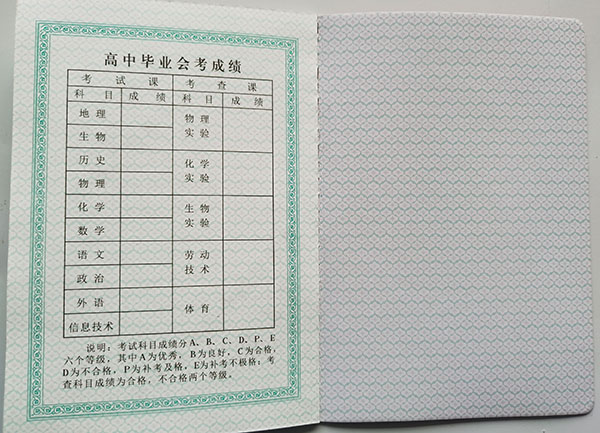 高中毕业会考成绩
考 试 课 考 查 课
科 目 成 绩 科 目 成 绩
地 理 物 理
实 验
生 物
历 史 化 学
实 验
物 理
化 学 生 物
实 验
数 学
语 文 劳 动
技 术
政 治
外 语 体 育
信息技术
说明：考试科目成绩分A、B、C、D、P、E
六个等级，其中A为优秀，B为良好，C为合格，
D为不合格，P为补考及格，E为补考不极格；考
查科目成绩为合格，不合格两个等级。